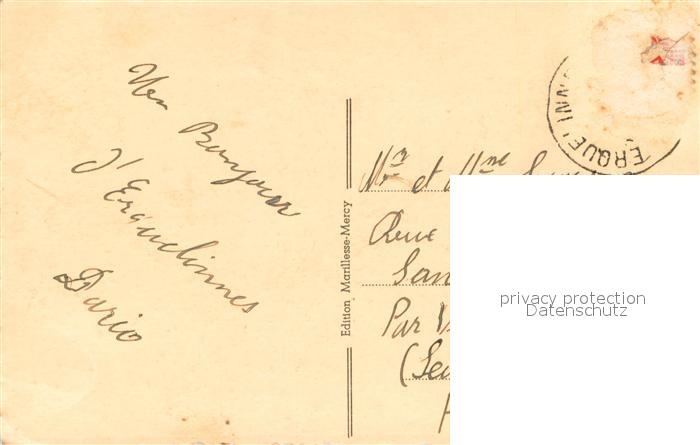 Un Bonjour
d'Erquelinnes
Dario
Edition Marillesse-Mercy
ERQUELINN
Mr et Mme
Rue
San
Par
privacy protection
Datenschutz